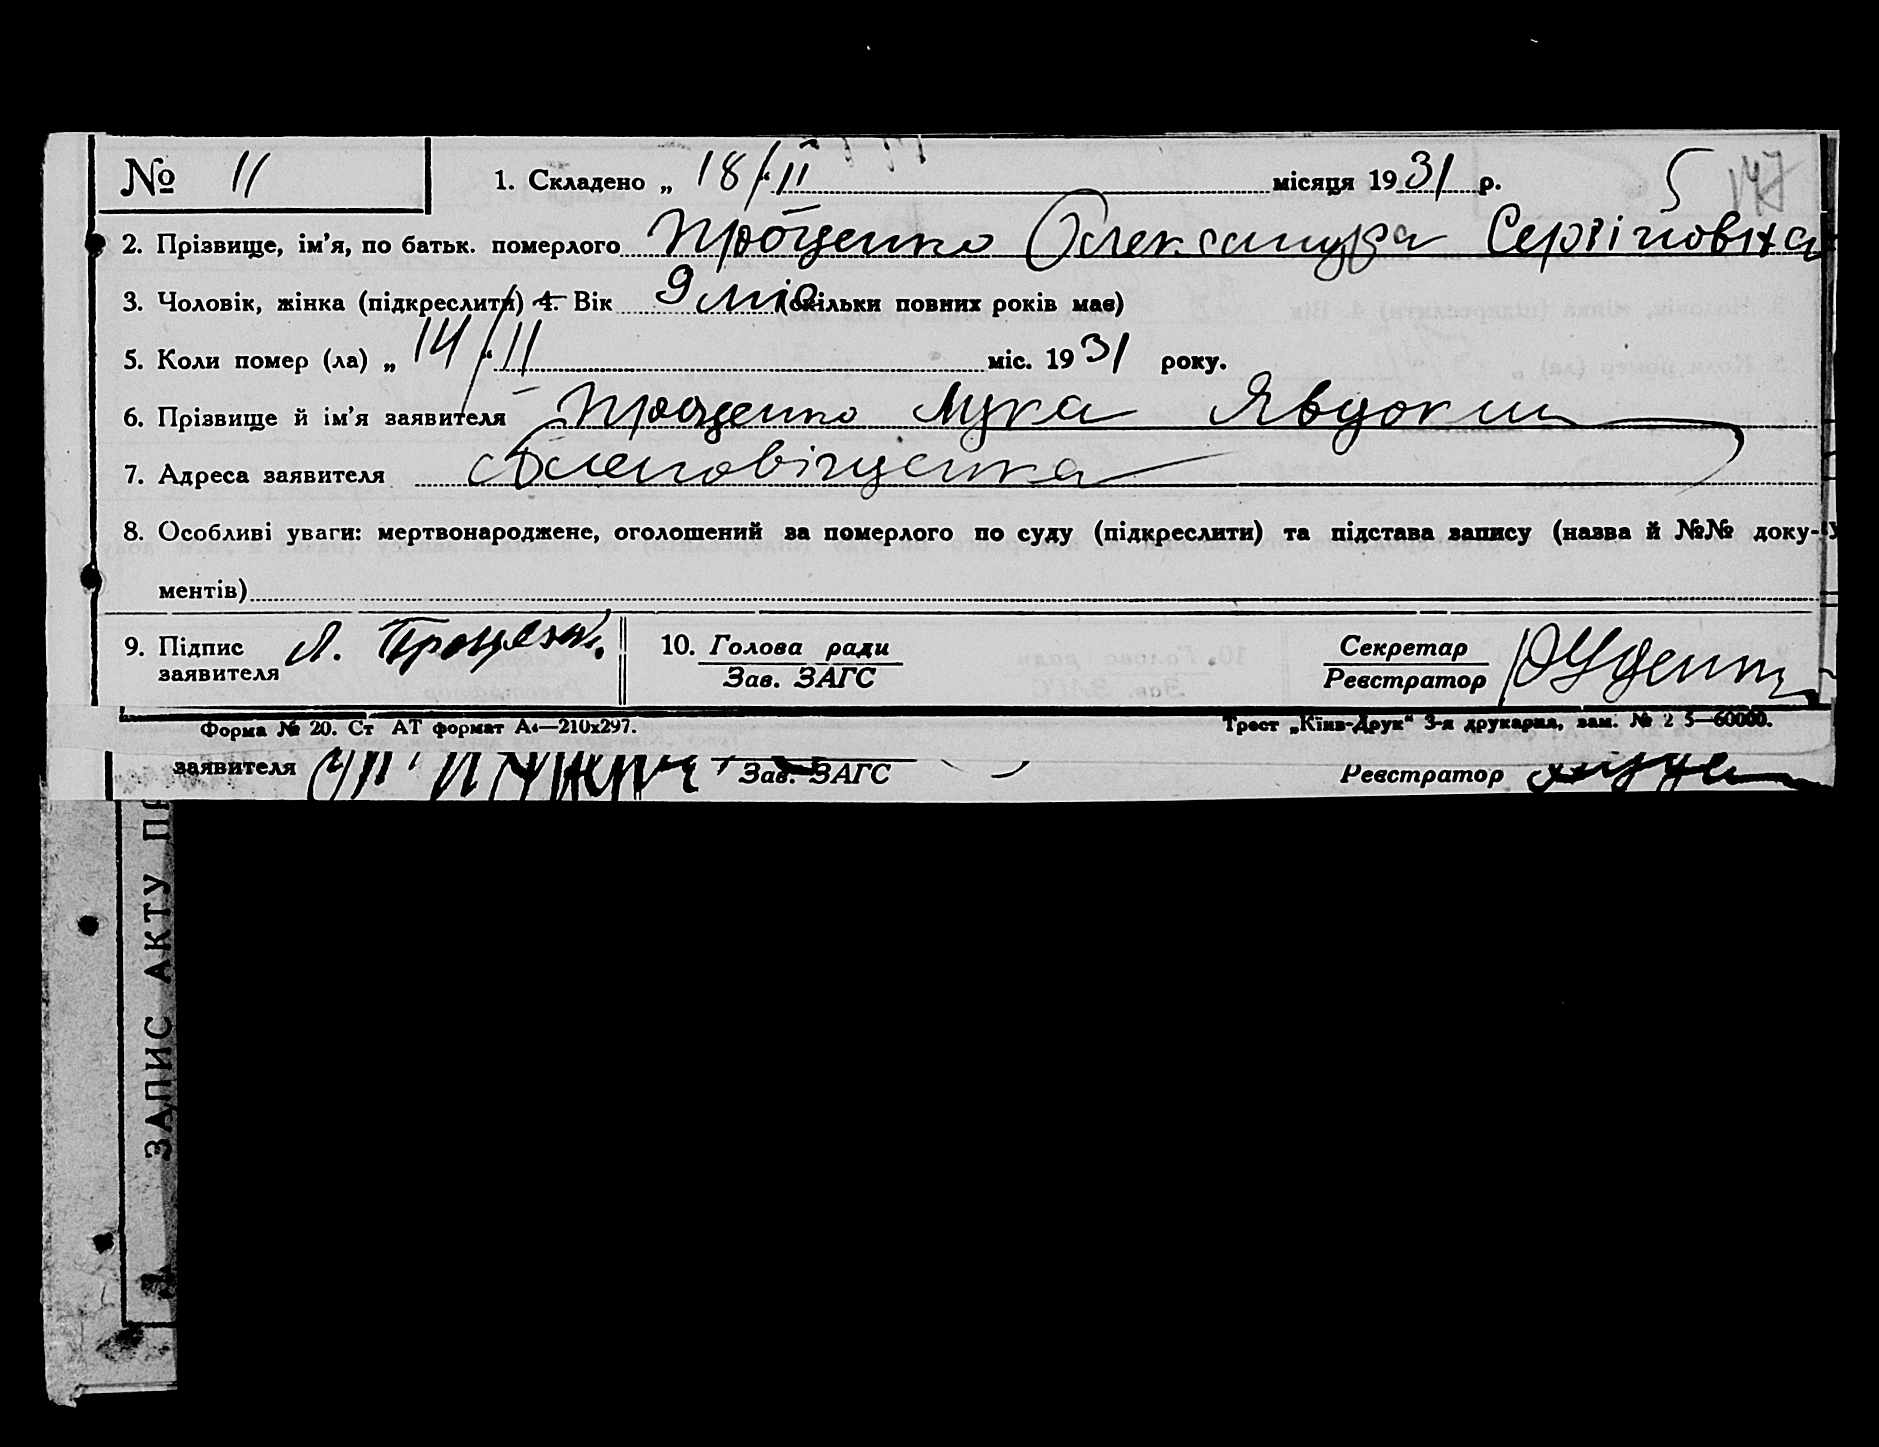 № 11 1. Складено „ 18 /“ II місяця 1931 р. 5 147
2. Прізвище, ім’я, по батьк. померлого Проценко Олександра Сергіївна
3. Чоловік, жінка (підкреслити) 4. Вік 9 міс (скільки повних років має)
5. Коли помер (ла) „ 14 /“ II міс. 1931 року.
6. Прізвище й ім’я заявителя Проценко Лука Явдоким
7. Адреса заявителя
8. Особливі уваги: мертвонароджене, оголошений за померлого по суду (підкреслити) та підстава запису (назва й №№ доку-
ментів)
9. Підпис заявителя Л. Проценк. 10. Голова ради Зав. ЗАГС Секретар Реєстратор
Форма № 20. Ст АТ формат А₄—210х297. Трест „Київ-Друк“ 3-я друкарня, зам. № 2 5—60000.
заявителя Зав. ЗАГС Реєстратор
ЗАПИС АКТУ ПР